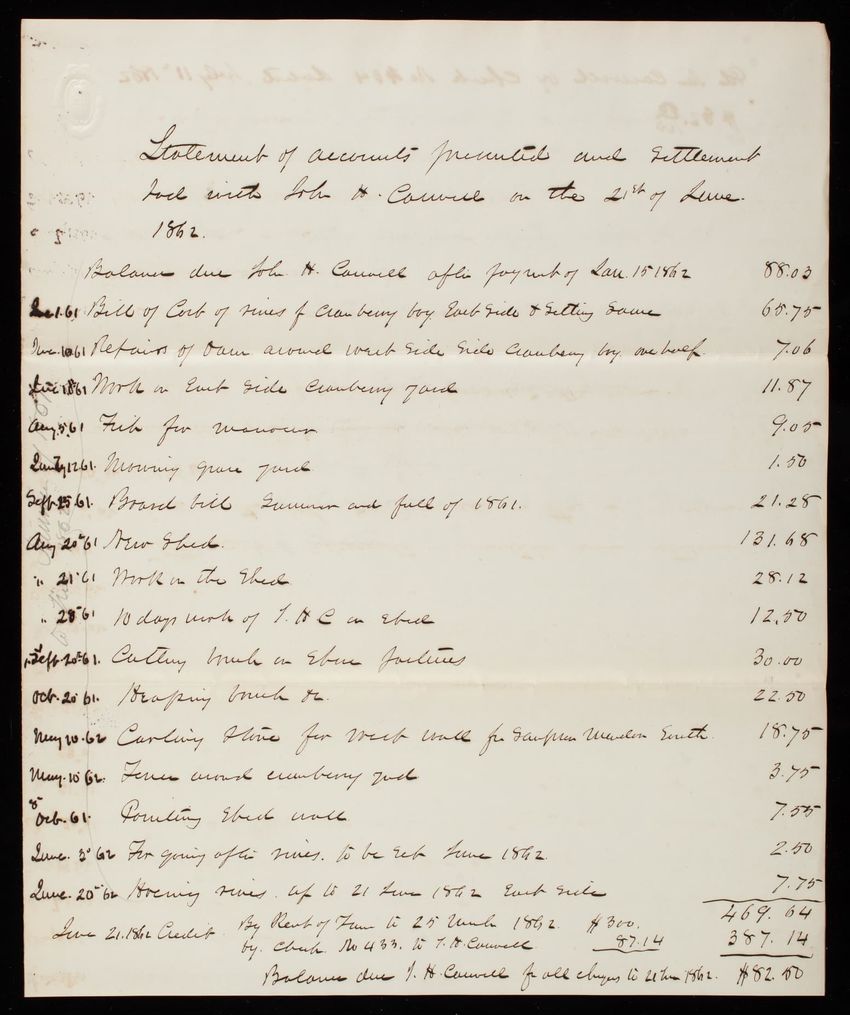 Statement of accounts presented and Settlement
had with John H. Caswell on the 21st of June
1862.
Balance due John H. Caswell after payment of Jan. 15 1862 88.03
61 Bill of Cost of vines f cranberry bog East Side & Setting Same 65.75
June 10 61 Repairs of Dam around west Side Side Cranberry bog one half. 7.06
Work on East Side Cranberry yard 11.87
Aug. 5, 61 Fish for manour 9.05
12 61. Mowing grave yard 1.50
Sept. 25 61. Board bill Summer and fall of 1861. 21.28
Aug 20" 61 New Shed. 131.68
" 21" 61 Work on the Shed 28.12
" 28" 61 10 days work of J. H C on Shed 12.50
Sept. 20" 61. Cutting brush on Shore pastures 30.00
Oct. 20 61. Heaping brush &c. 22.50
May 10. 62 Carting Stone for West wall fr Sampson Meadow South 18.75
May. 10 62. Fence around cranberry yard 3.75
8" Oct. 61. Pointing Shed wall 7.55
June. 3" 62 For going after vines. to be Set June 1862. 2.50
June. 20" 62 Hoeing vines. up to 21 June 1862 East Side 7.75
469.64
June 21. 1862 Credit By Rent of Farm to 25 March 1862. $300.
by. Check No 433. to J. H. Caswell 87.14 387.14
Balance due J. H. Caswell for all charges to 21 June 1862. $82.50